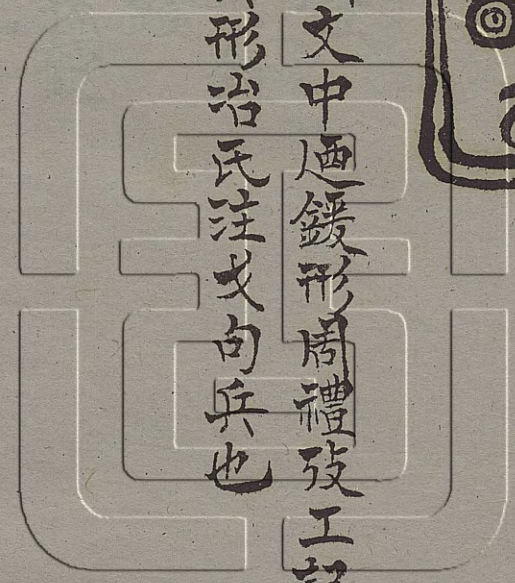 文中廼鍰形周禮攷工記
形冶氏注戈句兵也